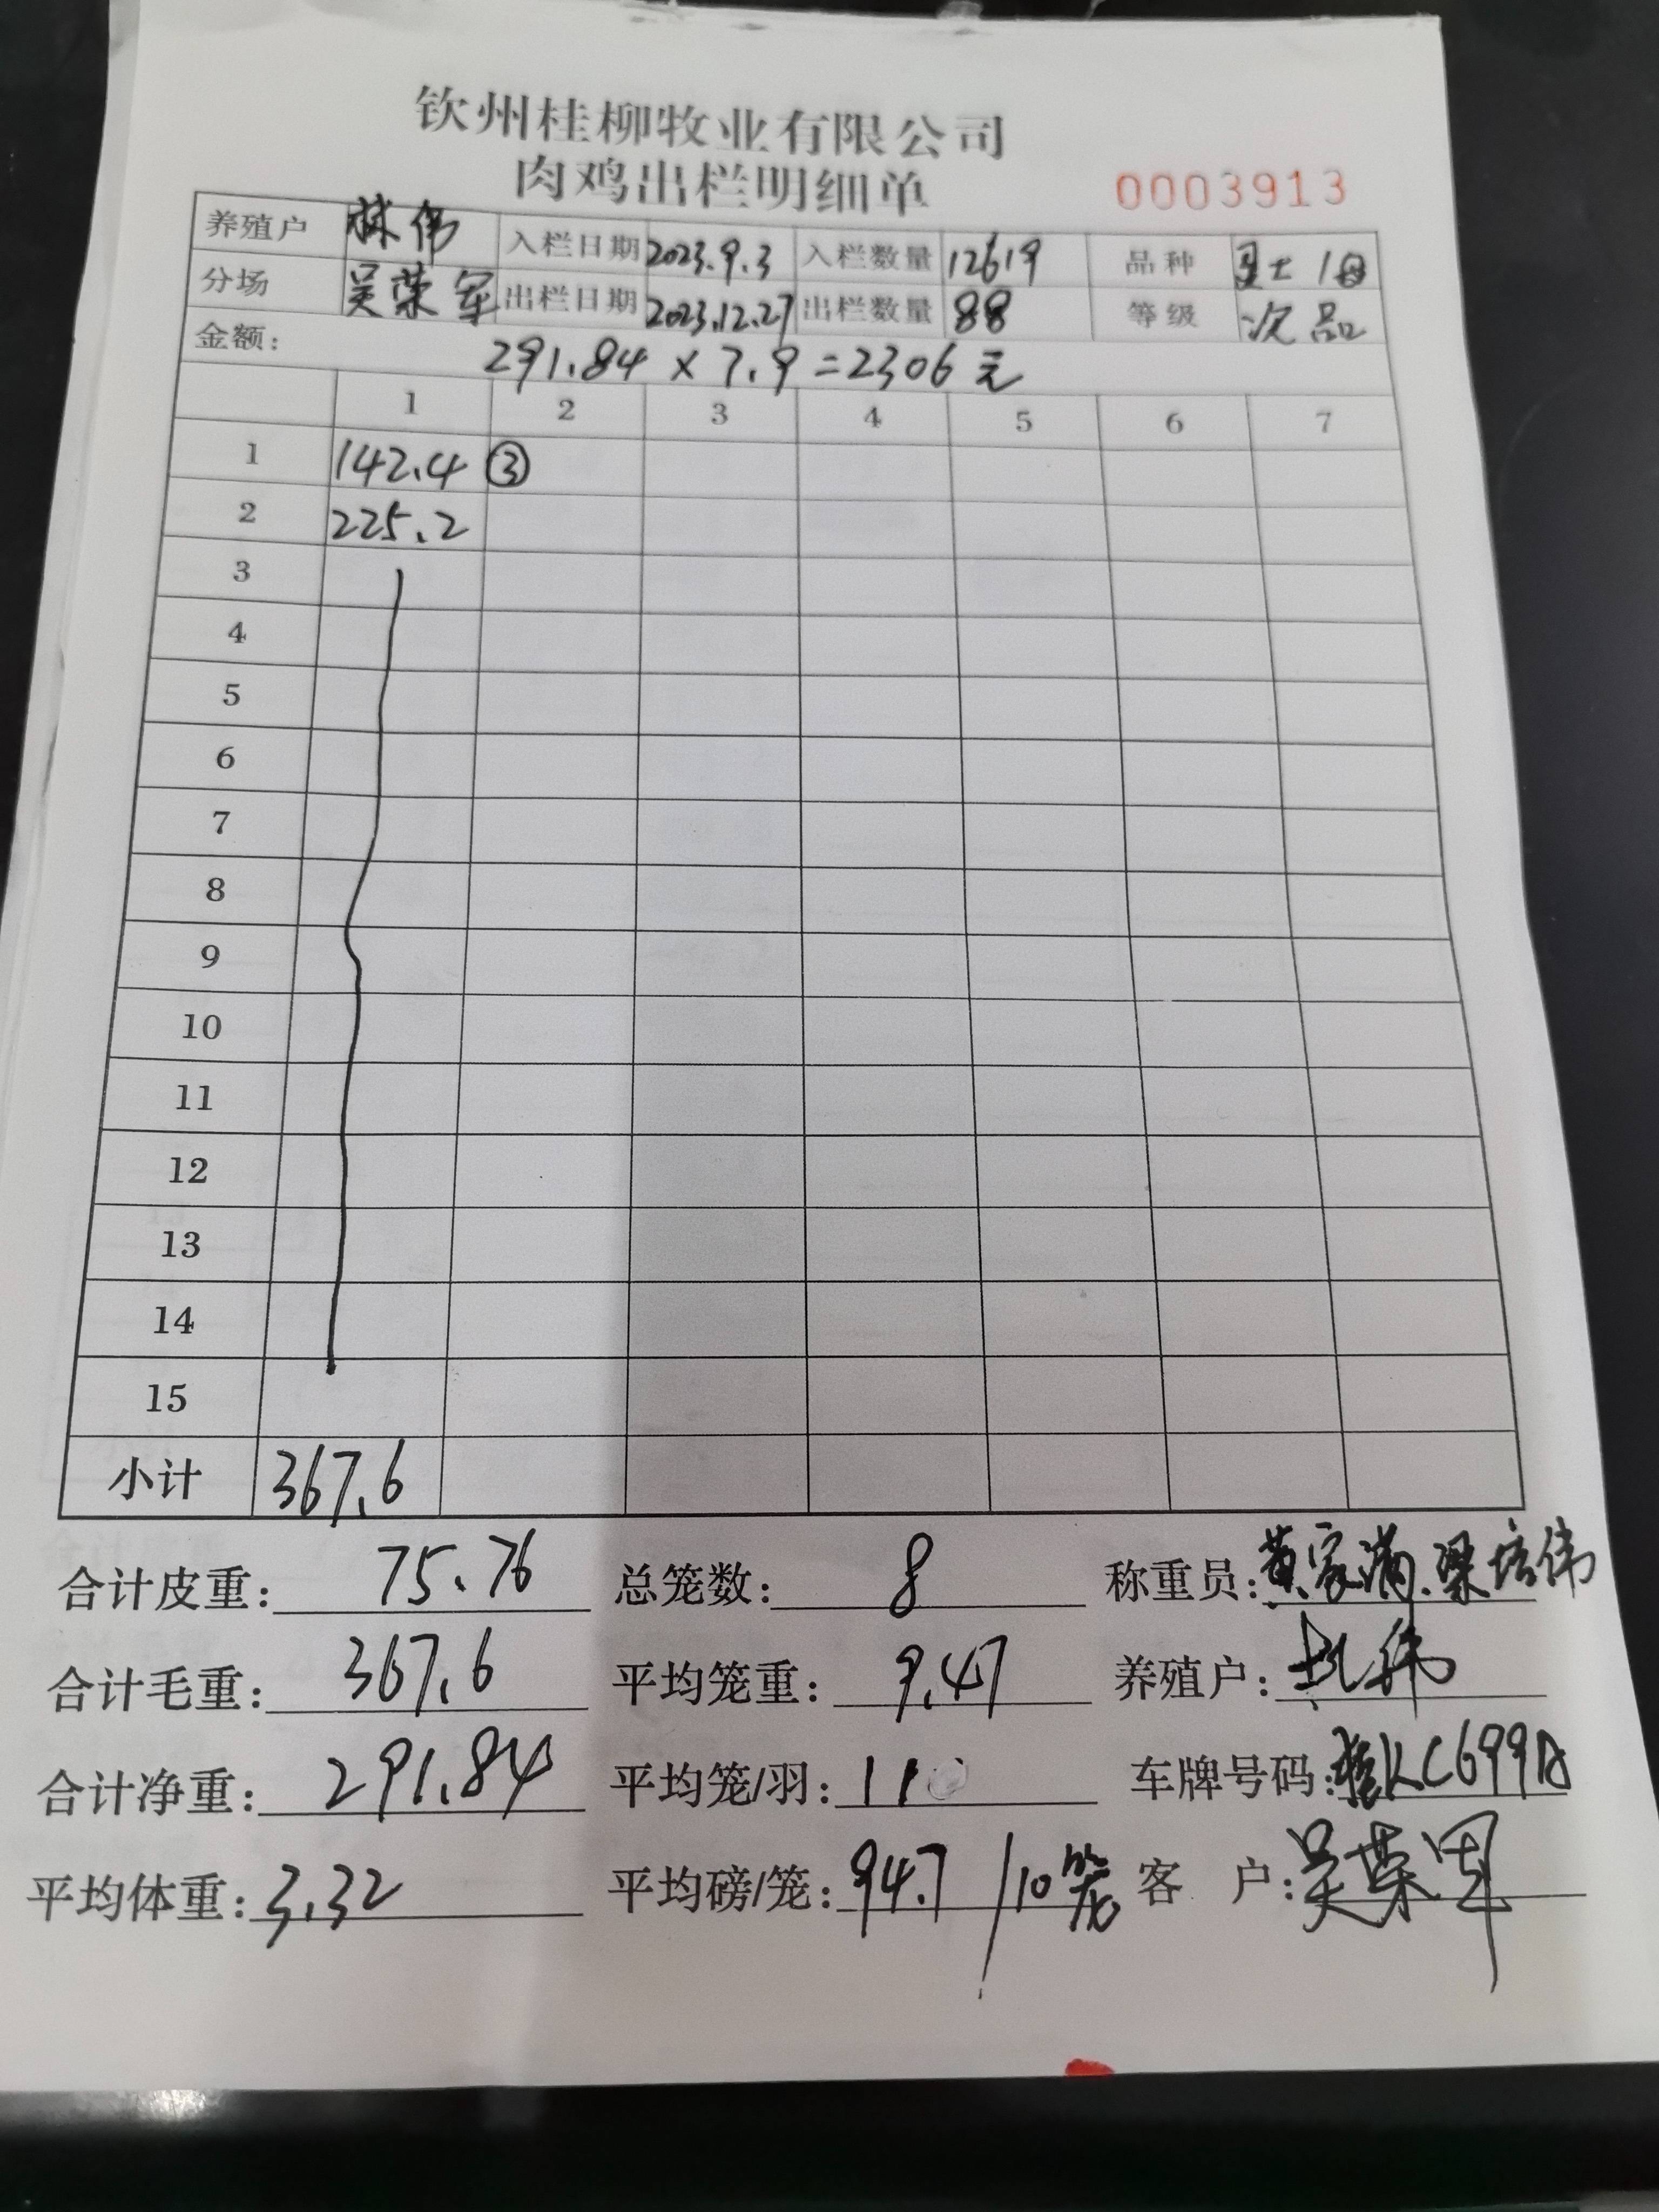 钦州桂柳牧业有限公司
肉鸡出栏明细单 0003913
养殖户 林伟 入栏日期 2023.9.3 入栏数量 12619 品种 土1母
分场 吴荣军 出栏日期 2023.12.27 出栏数量 88 等级 次品
金额: 291.84 × 7.9 = 2306 元
1 2 3 4 5 6 7
1 142.4 ③
2 225.2
3
4
5
6
7
8
9
10
11
12
13
14
15
小计 367.6
合计皮重: 75.76 总笼数: 8 称重员: 黄家满.梁培伟
合计毛重: 367.6 平均笼重: 9.47 养殖户: 林伟
合计净重: 291.84 平均笼/羽: 11 车牌号码: 桂KC699A
平均体重: 3.32 平均磅/笼: 94.7 /10笼 客 户: 吴荣军